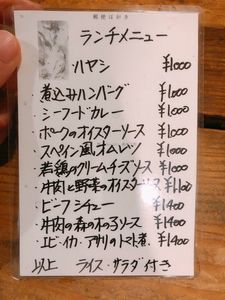 郵便はがき
ランチメニュー
・ハヤシ ¥1000
・煮込みハンバーグ ¥1000
・シーフードカレー ¥1000
・ポークのオイスターソース ¥1000
・スペイン風オムレツ ¥1000
・若鶏のクリームチーズソース ¥1000
・牛肉と野菜のオイスターソース ¥1100
・ビーフシチュー ¥1400
・牛肉の森のきのこソース ¥1400
・エビ・イカ・アサリのトマト煮 ¥1400
以上 ライス・サラダ付き